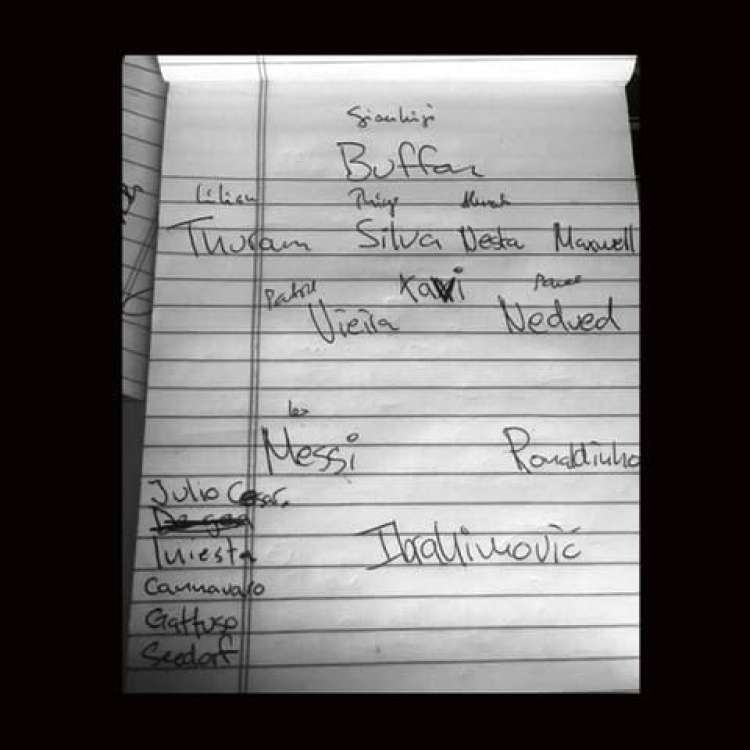 Gianluigi
Buffon
Lilian Thiago
Thuram Silva Nesta Maxwell
Xavi
Patrick
Vieira Nedved
Leo
Messi Ronaldinho
Julio Cesar.
De gea
Iniesta Ibrahimović
Cannavaro
Gattuso
Seedorf